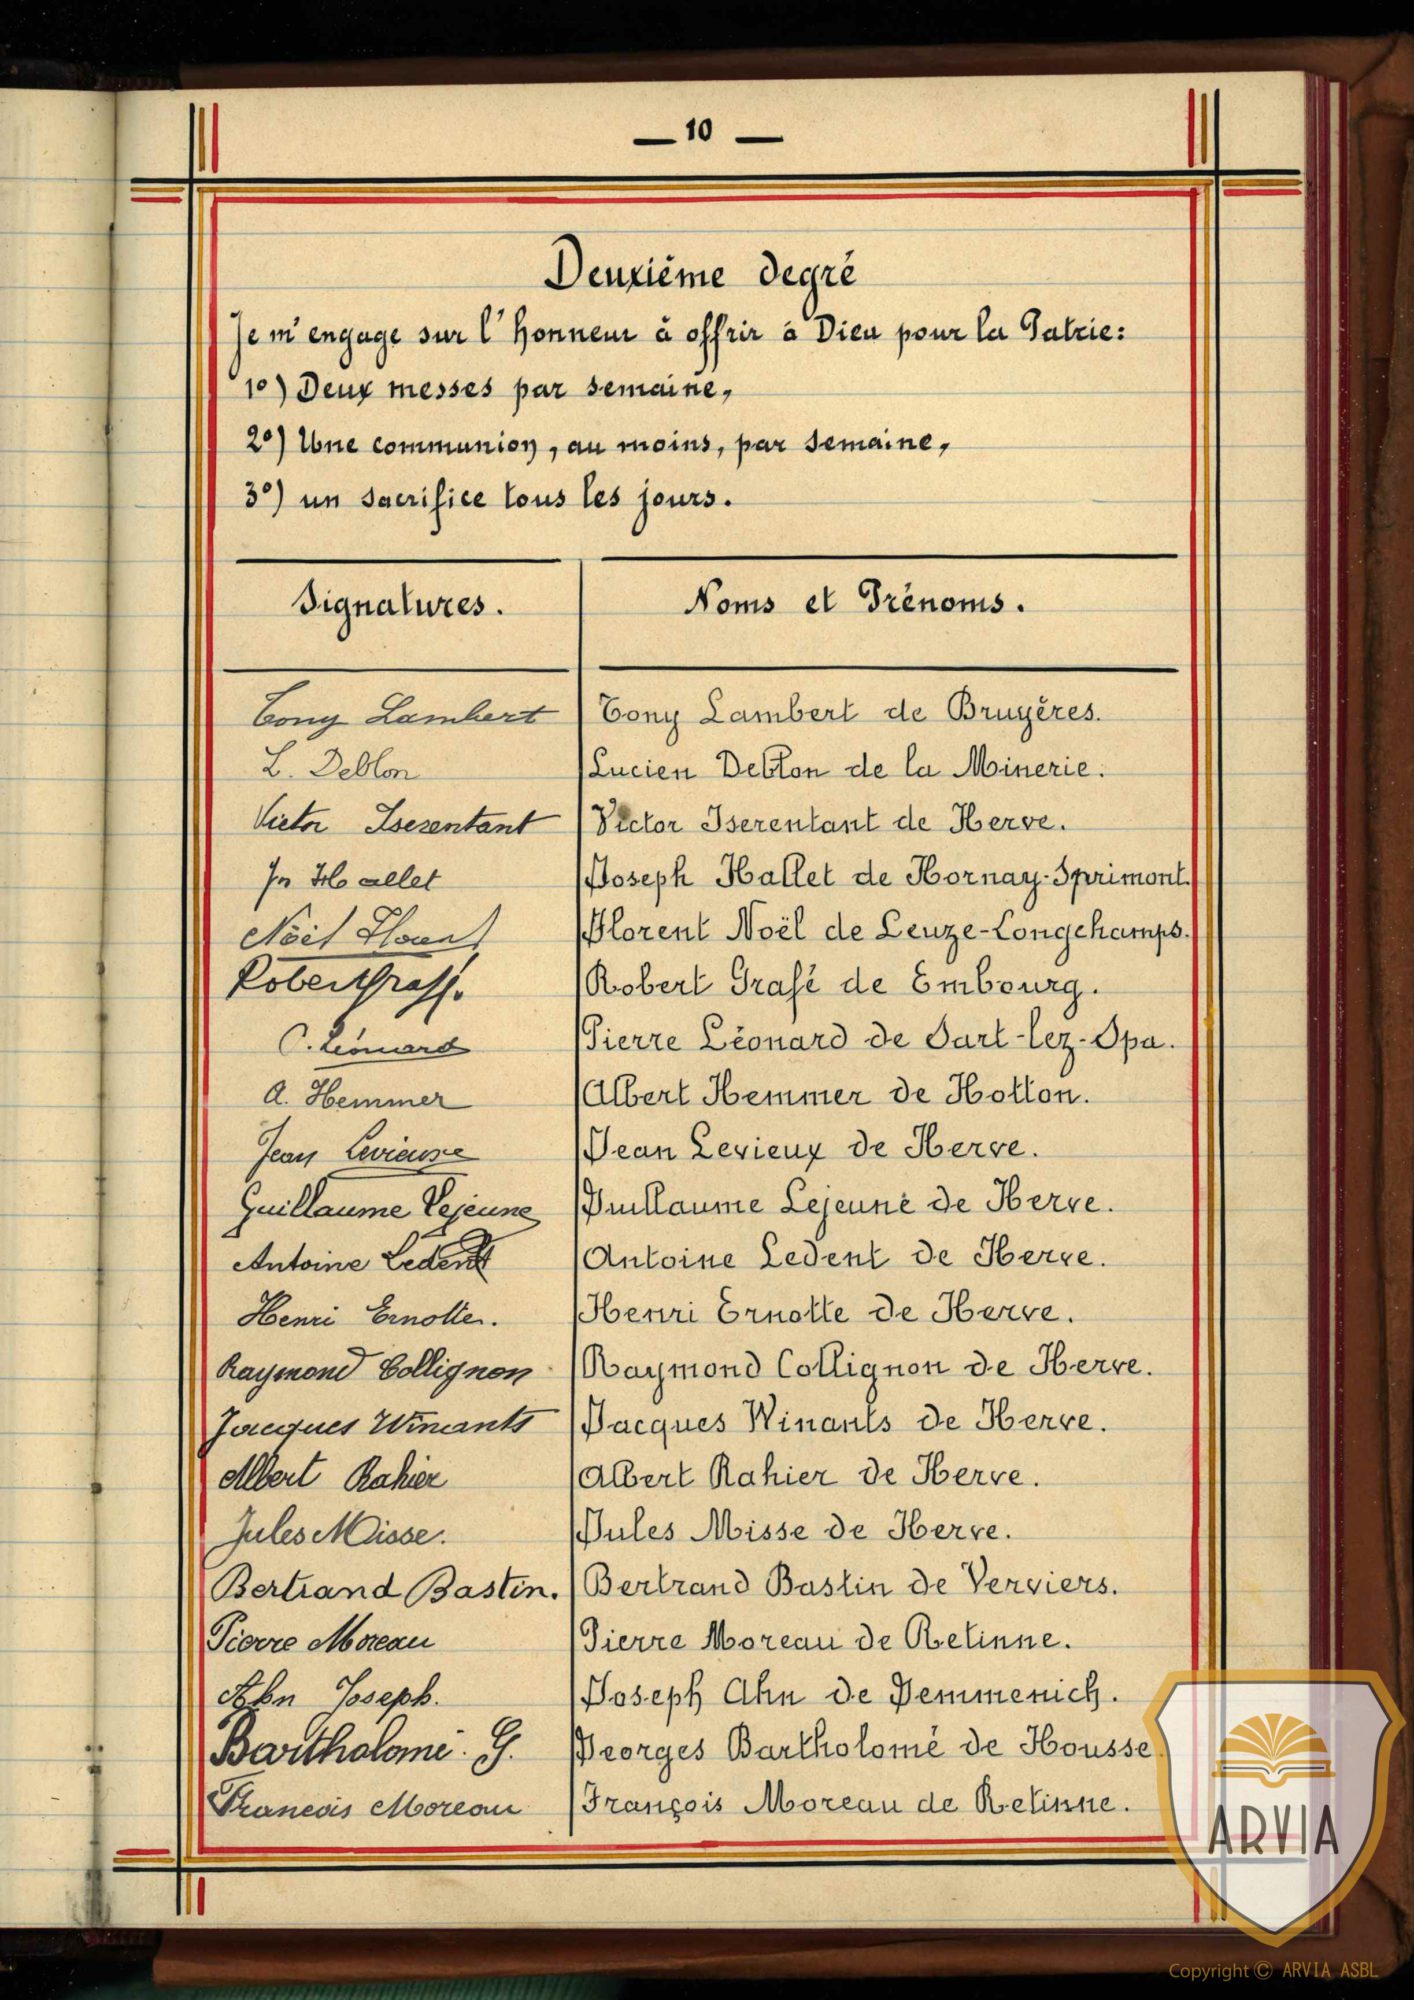 — 10 —
Deuxième degré
Je m'engage sur l'honneur à offrir à Dieu pour la Patrie:
1º) Deux messes par semaine,
2º) Une communion, au moins, par semaine,
3º) un sacrifice tous les jours.
Signatures. Noms et Prénoms.
Tony Lambert Tony Lambert de Bruyères.
L. Deblon Lucien Deblon de la Minerie.
Victor Iserentant Victor Iserentant de Herve.
Jh Hallet Joseph Hallet de Hornay-Sprimont.
Noël Florent Florent Noël de Leuze-Longchamps.
Robert Grafé. Robert Grafé de Embourg.
P. Léonard Pierre Léonard de Sart-lez-Spa.
A. Hemmer Albert Hemmer de Hotton.
Jean Levieux Jean Levieux de Herve.
Guillaume Lejeune Guillaume Lejeune de Herve.
Antoine Ledent Antoine Ledent de Herve.
Henri Ernotte. Henri Ernotte de Herve.
Raymond Collignon Raymond Collignon de Herve.
Jacques Winants Jacques Winants de Herve.
Albert Rahier Albert Rahier de Herve.
Jules Misse. Jules Misse de Herve.
Bertrand Bastin. Bertrand Bastin de Verviers.
Pierre Moreau Pierre Moreau de Retinne.
Ahn Joseph. Joseph Ahn de Gemmenich.
Bartholomé. G. Georges Bartholomé de Housse.
Francois Moreau François Moreau de Retinne.
ARVIA
Copyright © ARVIA ASBL